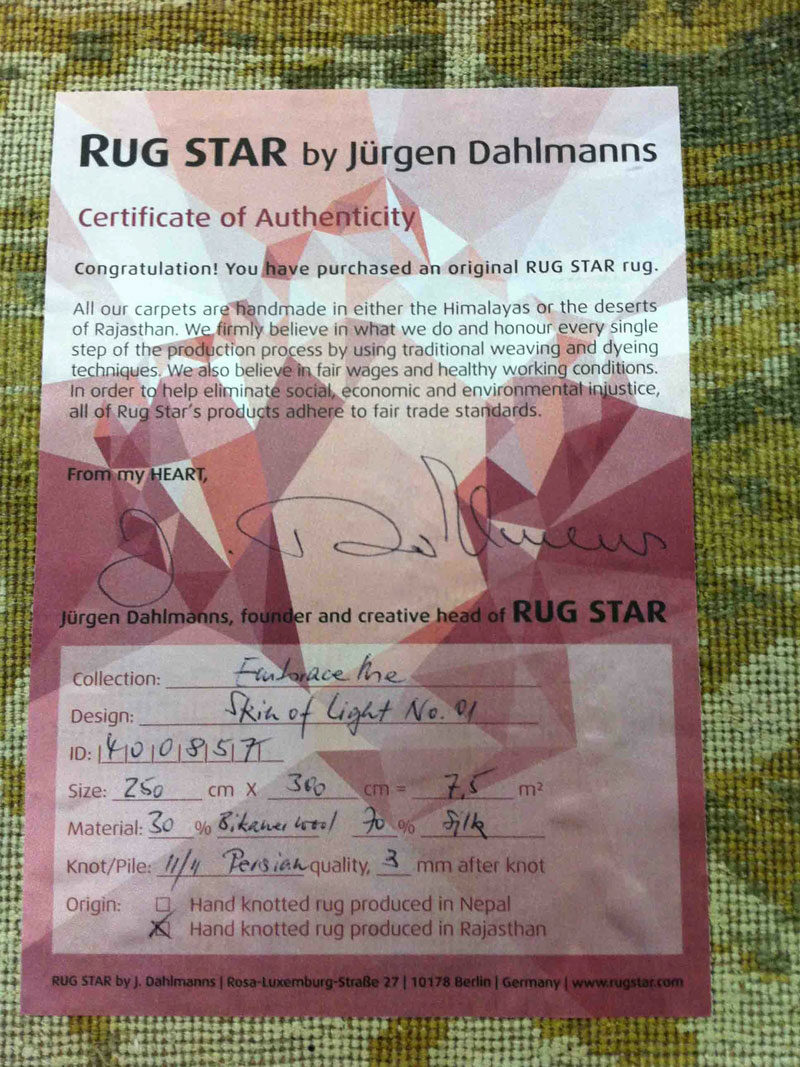 RUG STAR by Jürgen Dahlmanns
Certificate of Authenticity
Congratulation! You have purchased an original RUG STAR rug.
All our carpets are handmade in either the Himalayas or the deserts
of Rajasthan. We firmly believe in what we do and honour every single
step of the production process by using traditional weaving and dyeing
techniques. We also believe in fair wages and healthy working conditions.
In order to help eliminate social, economic and environmental injustice,
all of Rug Star's products adhere to fair trade standards.
From my HEART,
J. Dahlmanns
Jürgen Dahlmanns, founder and creative head of RUG STAR
Collection: Embrace Me
Design: Skin of Light No. 01
ID: |4|0|0|8|5|7
Size: 250 cm X 300 cm = 7,5 m²
Material: 30 % Bikaner wool 70 % Silk
Knot/Pile: 11/11 Persian quality, 3 mm after knot
Origin: Hand knotted rug produced in Nepal
Hand knotted rug produced in Rajasthan
RUG STAR by J. Dahlmanns | Rosa-Luxemburg-Straße 27 | 10178 Berlin | Germany | www.rugstar.com